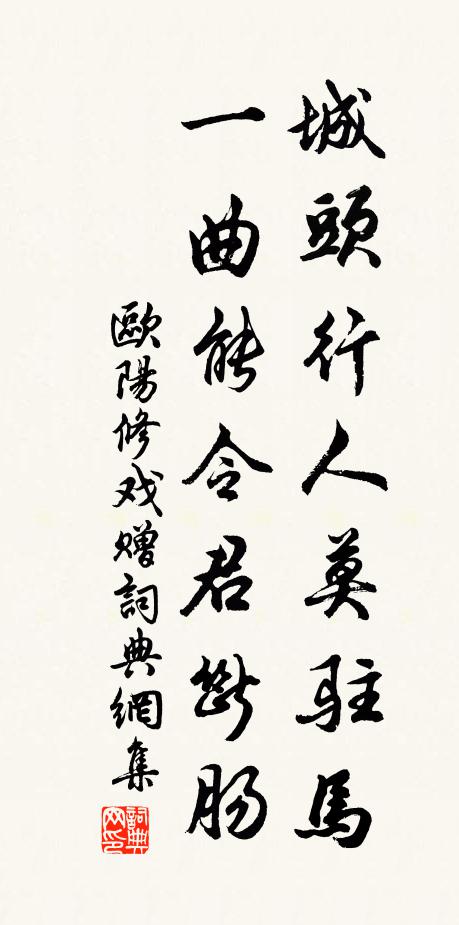 城頭行人莫駐馬
一曲能令君斷腸
歐陽修戏贈詞典網集
詞典网印